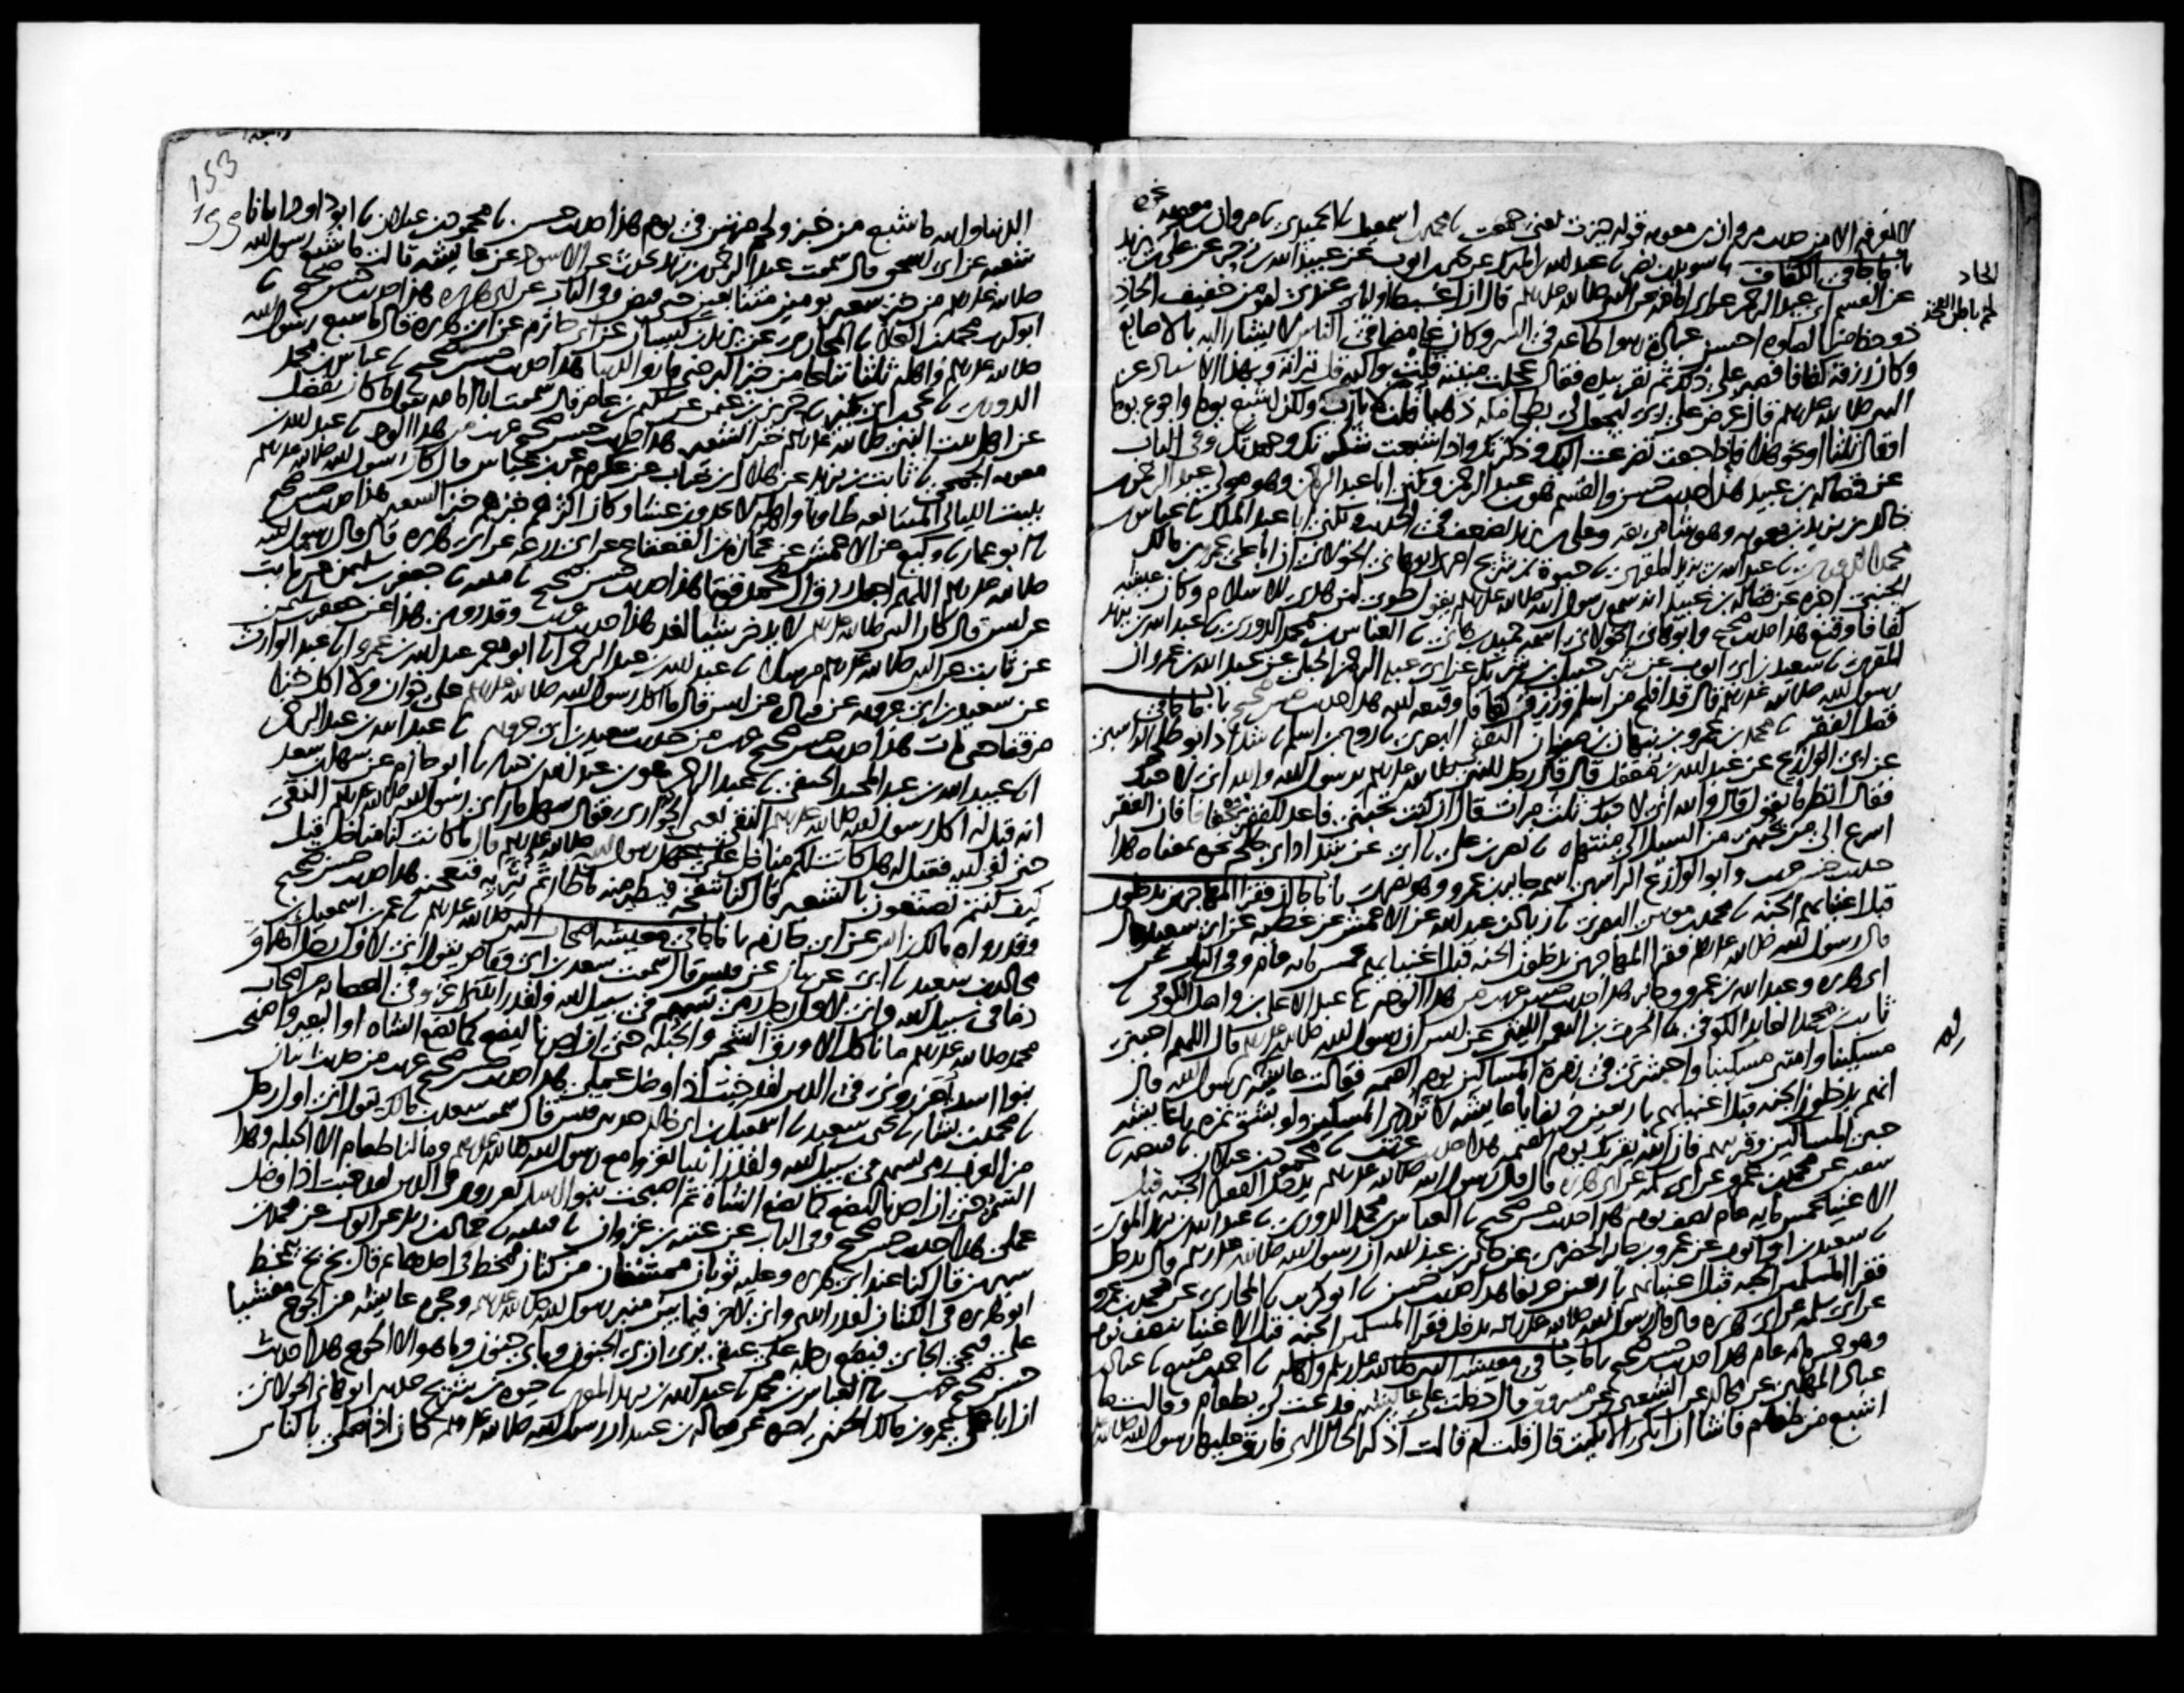 لا نعرفه الا من حديث مروان بن معويه قوله حيزت يعني جمعت نا محمد بن اسمعيل نا الحميدي نا مروان بن معويه نحوه
باب ما جا في الكفاف نا سويد بن نصر نا عبد الله بن المبرك عن يحيى بن ايوب عن عبيد الله بن زحر عن علي بن يزيد
عن القسم ابي عبد الرحمن عن ابي امامه عن النبي صلى الله عليه وسلم قال ان اغبط اوليائي عندي لمومن خفيف الحاذ
ذو حظ من الصلوه احسن عبادة ربه واطاعه في السر وكان غامضا في الناس لا يشار اليه بالاصابع
وكان رزقه كفافا فصبر على ذلك ثم نقر بيده فقال عجلت منيته قلت بواكيه قل تراثه وبهذا الاسناد عن
النبي صلى الله عليه وسلم قال عرض علي ربي ليجعل لي بطحا مكه ذهبا قلت لا يا رب ولكن اشبع يوما واجوع يوما
او قال ثلثا او نحو هذا فاذا جعت تضرعت اليك وذكرتك واذا شبعت شكرتك وحمدتك وفي الباب
عن فضاله بن عبيد هذا حديث حسن والقسم هو ابن عبد الرحمن ويكنى ابا عبد الرحمن وهو مولى عبد الرحمن بن
خالد بن يزيد بن معويه وهو شامي ثقه وعلي بن يزيد يضعف في الحديث ويكنى ابا عبد الملك نا عباس بن
محمد الدوري نا عبد الله بن يزيد المقري نا حيوة بن شريح اخبرني ابو هاني الخولاني ان ابا علي عمرو بن مالك
الجنبي اخبره عن فضاله بن عبيد انه سمع رسول الله صلى الله عليه وسلم يقول طوبى لمن هدي للاسلام وكان عيشه
كفافا وقنع هذا حديث صحيح وابو هاني الخولاني اسمه حميد بن هاني نا العباس بن محمد الدوري نا عبد الله بن يزيد
المقري نا سعيد بن ابي ايوب عن شرحبيل بن شريك عن ابي عبد الرحمن الحبلي عن عبد الله بن عمرو ان
رسول الله صلى الله عليه وسلم قال قد افلح من اسلم ورزق كفافا وقنعه الله هذا حديث حسن صحيح باب ما جا في
فضل الفقر نا محمد بن عمرو بن نبهان بن صفوان الثقفي البصري نا روح بن اسلم نا شداد ابو طلحه الراسبي
عن ابي الوازع عن عبد الله بن مغفل قال قال رجل للنبي صلى الله عليه وسلم يا رسول الله والله اني لاحبك
فقال انظر ما تقول قال والله اني لاحبك ثلث مرات قال ان كنت تحبني فاعد للفقر تجفافا فان الفقر
اسرع الى من يحبني من السيل الى منتهاه نا نصر بن علي نا ابي عن شداد ابي طلحه نحوه بمعناه هذا
حديث حسن غريب وابو الوازع الراسبي اسمه جابر بن عمرو وهو بصري باب ما جا ان فقرا المهاجرين يدخلون
قبل اغنيايهم الجنه نا محمد بن موسى البصري نا زياد بن عبد الله عن الاعمش عن عطيه عن ابي سعيد قال
قال رسول الله صلى الله عليه وسلم فقرا المهاجرين يدخلون الجنه قبل اغنيايهم بخمس مايه عام وفي الباب عن
ابي هريره وعبد الله بن عمرو وجابر هذا حديث حسن غريب من هذا الوجه نا عبد الاعلى بن واصل الكوفي نا
ثابت بن محمد العابد الكوفي نا الحرث بن النعمن الليثي عن انس ان رسول الله صلى الله عليه وسلم قال اللهم احيني
مسكينا وامتني مسكينا واحشرني في زمرة المساكين يوم القيمه فقالت عايشه لم يا رسول الله قال
انهم يدخلون الجنه قبل اغنيايهم باربعين خريفا يا عايشه لا تردي المسكين ولو بشق تمره يا عايشه
حبي المساكين وقربيهم فان الله يقربك يوم القيمه هذا حديث غريب نا محمود بن غيلان نا قبيصه نا
سفين عن محمد بن عمرو عن ابي سلمه عن ابي هريره قال قال رسول الله صلى الله عليه وسلم يدخل الفقرا الجنه قبل
الاغنيا بخمس مايه عام نصف يوم هذا حديث حسن صحيح نا العباس بن محمد الدوري نا عبد الله بن يزيد المقري
نا سعيد بن ابي ايوب عن عمرو بن جابر الحضرمي عن جابر بن عبد الله ان رسول الله صلى الله عليه وسلم قال يدخل
فقرا المسلمين الجنه قبل اغنيايهم باربعين خريفا هذا حديث حسن نا ابو كريب نا المحاربي عن محمد بن عمرو
عن ابي سلمه عن ابي هريره قال قال رسول الله صلى الله عليه وسلم يدخل فقرا المسلمين الجنه قبل الاغنيا بنصف يوم
وهو خمس مايه عام هذا حديث حسن صحيح باب ما جا في معيشه النبي صلى الله عليه وسلم واهله نا احمد بن منيع نا عباد بن
عباد المهلبي عن مجالد عن الشعبي عن مسروق قال دخلت على عايشه فدعت لي بطعام وقالت ما
اشبع من طعام فاشا ان ابكي الا بكيت قال قلت لم قالت اذكر الحال التي فارق عليها رسول الله صلى الله عليه وسلم
الحاذ
لحم باطن الفخذ
153
الدنيا والله ما شبع من خبز ولحم مرتين في يوم هذا حديث حسن نا محمود بن غيلان نا ابو داود انبانا
شعبه عن ابي اسحق قال سمعت عبد الرحمن بن يزيد يحدث عن الاسود عن عايشه قالت ما شبع رسول الله
صلى الله عليه وسلم من خبز شعير يومين متتابعين حتى قبض وفي الباب عن ابي هريره هذا حديث حسن صحيح نا
ابو كريب محمد بن العلا نا المحاربي عن يزيد بن كيسان عن ابي حازم عن ابي هريره قال ما شبع رسول الله
صلى الله عليه وسلم واهله ثلثا تباعا من خبز البر حتى فارق الدنيا هذا حديث حسن صحيح نا عباس بن محمد
الدوري نا يحيى بن ابي بكير نا حريز بن عثمن عن سليم بن عامر قال سمعت ابا امامه يقول ما كان يفضل
عن اهل بيت النبي صلى الله عليه وسلم خبز الشعير هذا حديث حسن صحيح غريب من هذا الوجه نا عبد الله بن
معويه الجمحي نا ثابت بن يزيد عن هلال بن خباب عن عكرمه عن ابن عباس قال كان رسول الله صلى الله عليه وسلم
يبيت الليالي المتتابعه طاويا واهله لا يجدون عشا وكان اكثر خبزهم خبز الشعير هذا حديث حسن صحيح
نا ابو عمار نا وكيع عن الاعمش عن عماره بن القعقاع عن ابي زرعه عن ابي هريره قال قال رسول الله
صلى الله عليه وسلم اللهم اجعل رزق ال محمد قوتا هذا حديث حسن صحيح نا قتيبه نا جعفر بن سليمن عن ثابت
عن انس قال كان النبي صلى الله عليه وسلم لا يدخر شيا لغد هذا حديث غريب وقد روي هذا عن جعفر بن سليمن
عن ثابت عن النبي صلى الله عليه وسلم مرسلا نا عبد الله بن عبد الرحمن انا ابو معمر عبد الله بن عمرو انا عبد الوارث
عن سعيد بن ابي عروبه عن قتاده عن انس قال ما اكل رسول الله صلى الله عليه وسلم على خوان ولا اكل خبزا
مرققا حتى مات هذا حديث حسن صحيح غريب من حديث سعيد بن ابي عروبه نا عبد الله بن عبد الرحمن
انا عبيد الله بن عبد المجيد الحنفي نا عبد الرحمن هو ابن عبد الله بن دينار نا ابو حازم عن سهل بن سعد
انه قيل له اكل رسول الله صلى الله عليه وسلم النقي يعني الحوارى فقال سهل ما راى رسول الله صلى الله عليه وسلم النقي
حتى لقي الله فقيل له هل كانت لكم مناخل على عهد رسول الله صلى الله عليه وسلم قال ما كانت لنا مناخل قيل
كيف كنتم تصنعون بالشعير قال كنا ننفخه فيطير منه ما طار ثم نثريه فنعجنه هذا حديث حسن صحيح
وقد رواه مالك بن انس عن ابي حازم باب ما جا في معيشه اصحاب النبي صلى الله عليه وسلم نا عمر بن اسمعيل بن
مجالد بن سعيد نا ابي عن بيان عن قيس قال سمعت سعد بن ابي وقاص يقول اني لاول رجل اهراق
دما في سبيل الله واني لاول رجل رمى بسهم في سبيل الله ولقد رايتني اغزو في العصابه من اصحاب
محمد صلى الله عليه وسلم ما ناكل الا ورق الشجر والحبله حتى ان احدنا ليضع كما تضع الشاه او البعير واصبحت
بنو اسد تعزرني في الدين لقد خبت اذا وضل عملي هذا حديث حسن صحيح غريب من حديث بيان
نا محمد بن بشار نا يحيى بن سعيد نا اسمعيل بن ابي خالد حدثني قيس قال سمعت سعد بن مالك يقول اني اول رجل
من العرب رمى بسهم في سبيل الله ولقد رايتنا نغزو مع رسول الله صلى الله عليه وسلم وما لنا طعام الا الحبله وهذا
السمر حتى ان احدنا ليضع كما تضع الشاة ثم اصبحت بنو اسد تعزرني في الدين لقد خبت اذا وضل
عملي هذا حديث حسن صحيح وفي الباب عن عتبه بن غزوان نا قتيبه نا حماد بن زيد عن ايوب عن محمد بن
سيرين قال كنا عند ابي هريره وعليه ثوبان ممشقان من كتان فمخط في احدهما ثم قال بخ بخ يتمخط
ابو هريره في الكتان لقد رايتني واني لاخر فيما بين منبر رسول الله صلى الله عليه وسلم وحجره عايشه من الجوع مغشيا
علي فيجي الجاي فيضع رجله على عنقي يرى ان بي الجنون وما بي جنون وما هو الا الجوع هذا حديث
حسن صحيح غريب نا العباس بن محمد نا عبد الله بن يزيد المقري نا حيوه بن شريح حدثني ابو هاني الخولاني
ان ابا علي عمرو بن مالك الجنبي اخبره عن فضاله بن عبيد ان رسول الله صلى الله عليه وسلم كان اذا صلى بالناس